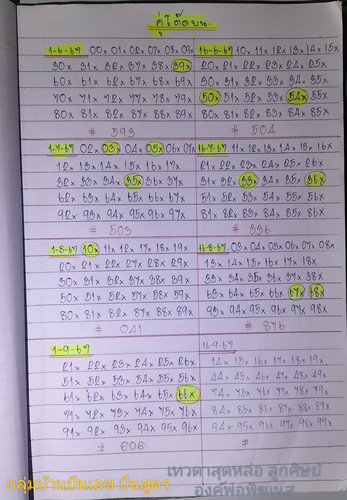 คู่โต๊ดบน
1-6-67 00x 01x 02x 07x 08x 09x
30x 31x 32x 37x 38x 39x
60x 61x 62x 67x 68x 69x
70x 71x 72x 77x 78x 79x
80x 81x 82x 87x 88x 89x
# 593
16-6-67 10x 11x 12x 13x 14x 15x
20x 21x 22x 23x 24x 25x
30x 31x 32x 33x 34x 35x
50x 51x 52x 53x 54x 55x
80x 81x 82x 83x 84x 85x
# 504
1-7-67 02x 03x 04x 05x 06x 07x
12x 13x 14x 15x 16x 17x
32x 33x 34x 35x 36x 37x
62x 63x 64x 65x 66x 67x
92x 93x 94x 95x 96x 97x
# 503
16-7-67 11x 12x 13x 14x 15x 16x
21x 22x 23x 24x 25x 26x
31x 32x 33x 34x 35x 36x
51x 52x 53x 54x 55x 56x
81x 82x 83x 84x 85x 86x
# 336
1-8-67 10x 11x 12x 17x 18x 19x
20x 21x 22x 27x 28x 29x
30x 31x 32x 37x 38x 39x
50x 51x 52x 57x 58x 59x
80x 81x 82x 87x 88x 89x
# 041
16-8-67 03x 04x 05x 06x 07x 08x
13x 14x 15x 16x 17x 18x
33x 34x 35x 36x 37x 38x
63x 64x 65x 66x 67x 68x
93x 94x 95x 96x 97x 98x
# 876
1-9-67
21x 22x 23x 24x 25x 26x
51x 52x 53x 54x 55x 56x
61x 62x 63x 64x 65x 66x
71x 72x 73x 74x 75x 76x
91x 92x 93x 94x 95x 96x
# 606
16-9-67
14x 15x 16x 17x 18x 19x
44x 45x 46x 47x 48x 49x
74x 75x 76x 77x 78x 79x
84x 85x 86x 87x 88x 89x
94x 95x 96x 97x 98x 99x
#
เทวดาสุดหล่อ ลูกศิษย์
องค์พ่อพิฆเนศ
กลุ่มบ้านปั่นเลข ปั่นสูตร